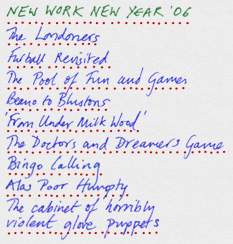 NEW WORK NEW YEAR '06
The Londoners
Furball Revisited
The Pool of Fun and Games
Beano to Blustons
'From Under Milk Wood'
The Doctors and Dreamers Game
Bingo Calling
Alas Poor Humpty
The cabinet of horribly
violent glove puppets